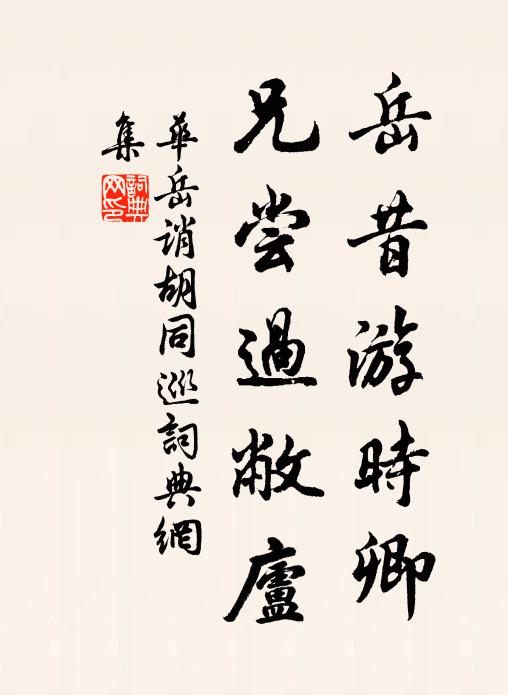 岳昔游時卿
兄尝過敝廬
華岳誚胡同巡詞典網
集
詞典网印